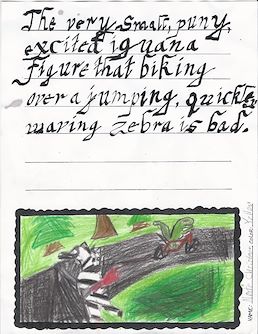 The very small, puny,
excited iguana
figure that biking
over a jumping, quickly
waving zebra is bad.